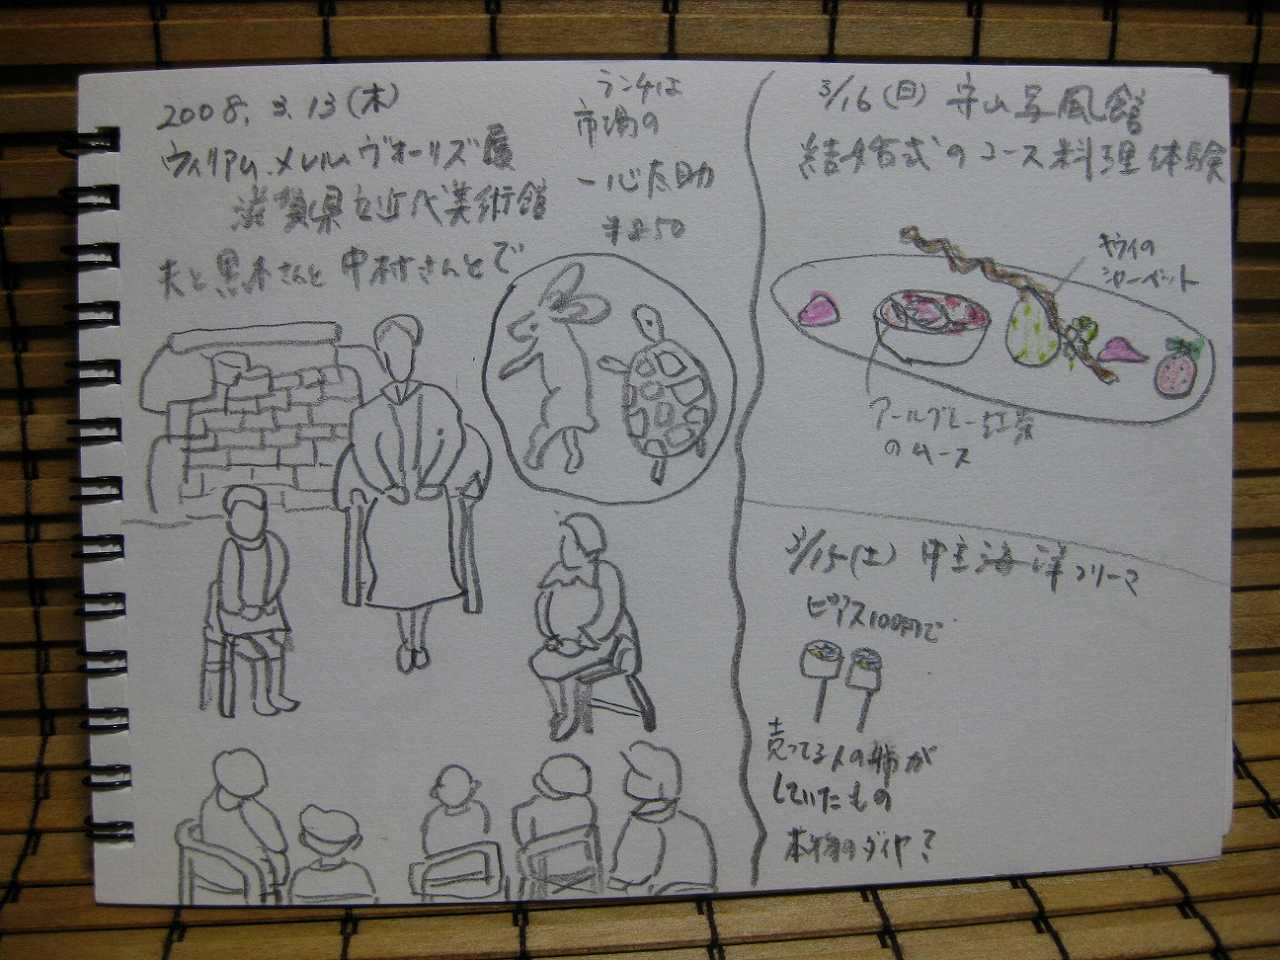 2008. 3. 13 (木)
ウィリアム.メレル.ヴォーリズ展
滋賀県立近代美術館
夫と黒木さんと中村さんとで
ランチは
市場の
一心太助
¥850
3/16 (日) 守山写風館
結婚式のコース料理体験
キウイの
シャーベット
アールグレー紅茶
のムース
3/15 (土) 中主海洋フリーマ
ピアス100円で
売ってる人の姉が
していたもの
本物のダイヤ?